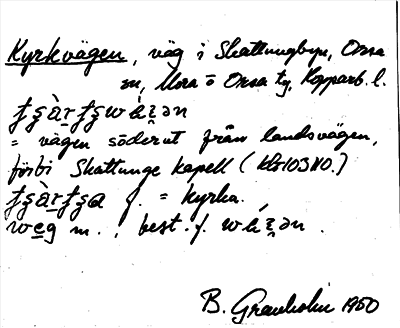 Kyrkvägen, väg i Skattungbyn, Orsa
sn, Mora o Orsa tg, Kopparb. l.
= vägen söderut från landsvägen,
förbi Skattunge kapell
f. = kyrka.
weg m., best. f.
B. Granholm 1950